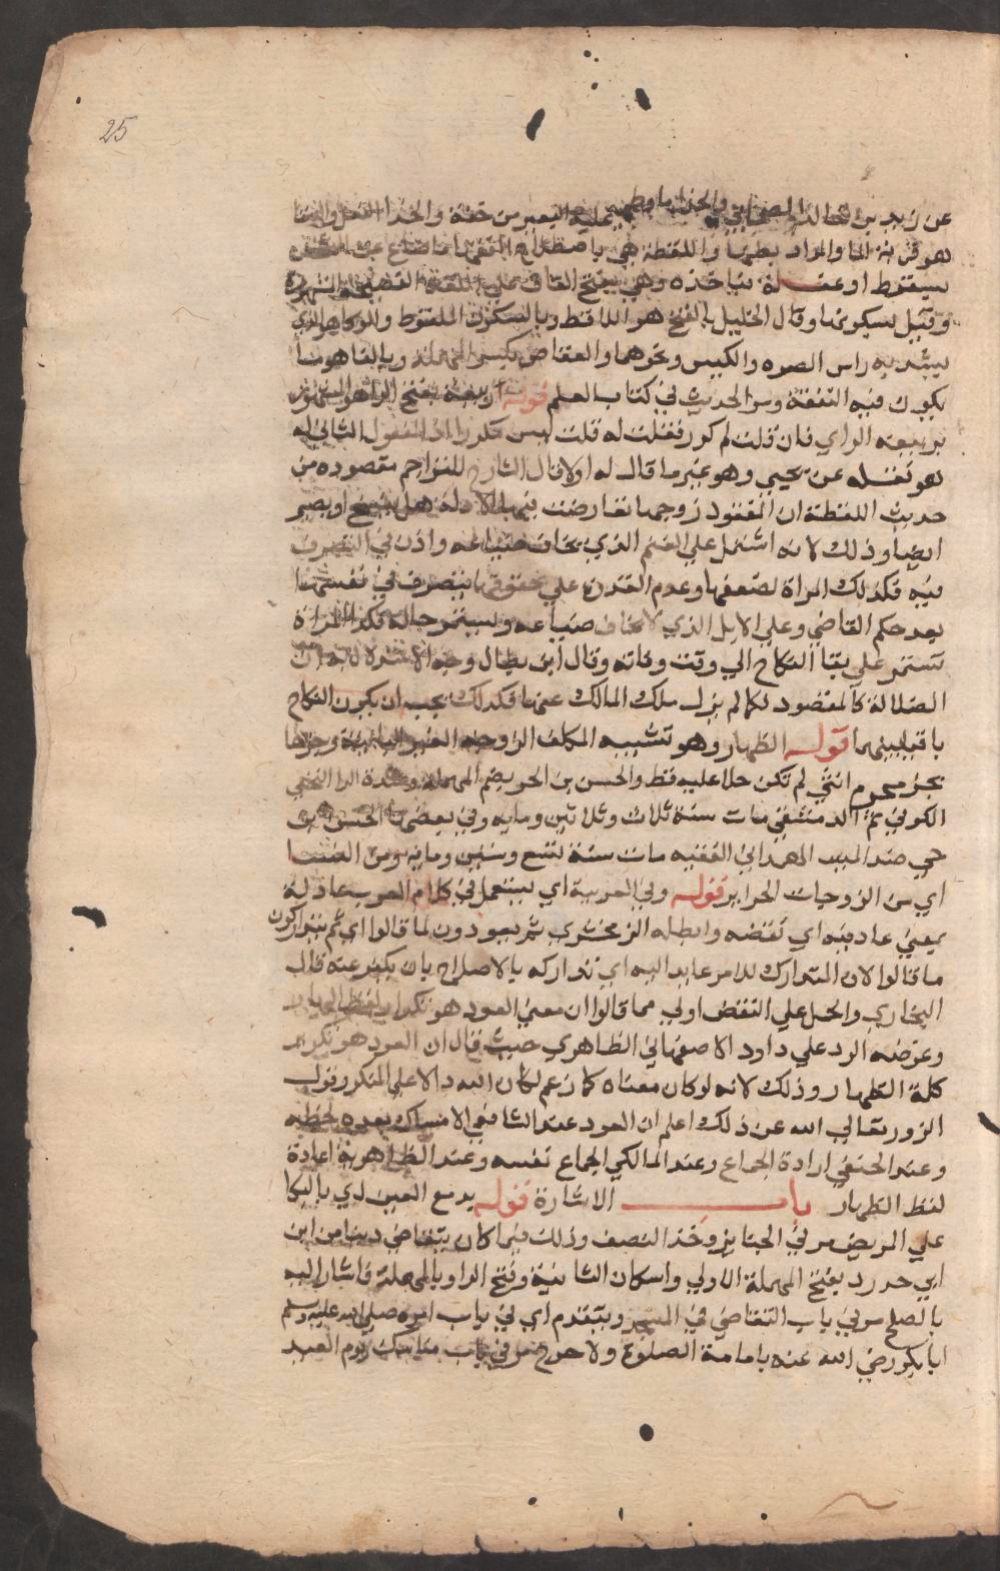 25
عن زيد بن خالد الصحابي والحذا ما وطي عليه البعير من خفه والحذا النعل والسقا
هو قربة الما والمراد بطنها واللقطة هي باصطلاح الفقها ما ضاع عن
بسقوط او غفلة فياخذه وهي بفتح القاف على اللغة الفصيحة المشهورة
وقيل بسكونها وقال الخليل بالفتح هو اللاقط وبالسكون الملقوط والوكا هو الذي
يشد به راس الصره والكيس ونحوهما والعفاص بكسر المهملة وبالفا هو ما
يكون فيه النفقة ومر الحديث في كتاب العلم قوله ربيعة بفتح الرا هو المشهور
بربيعه الراي فان قلت لم كرر فقلت له قلت ليس مكررا اذ المفعول الثاني له
هو نقله عن يحيي وهو غير ما قال له اولا قال الشارح للتراجم مقصوده من
حديث اللقطة ان المفقود زوجها تعارضت فيها الادلة هل يفسخ او يصبر
ايضا وذلك لانه اشتمل علي الغنم الذي يخاف ضياعه واذن في التصرف
فيه فكذلك المراة لضعفها وعدم القدرة علي حقوقها يتصرف في نفسها
بعد حكم القاضي وعلي الابل الذي لا يخاف ضياعه ويستمر حاله فكذا المراة
تستمر علي بقا النكاح الي وقت وفاته وقال ابن بطال وجه الاستدلال به ان
الضالة كالمفقود لكما لم يزل ملك المالك عنها فكذلك يجب ان يكون النكاح
باقيا بينهما قوله الظهار وهو تشبيه المكلف الزوجه الغير الباينة وجزها
بجز محرم انثي لم تكن حلا عليه قط والحسن بن الحر بضم المهملة وشدة الرا النخعي
الكوفي ثم الدمشقي مات سنة ثلاث وثلاثين ومايه وفي بعضها الحسن بن
حي ضد الميت الهمداني الفقيه مات سنة تسع وستين ومايه ومن النسا
اي من الزوجات الحراير قوله وفي العربية اي يستعمل في كلام العرب عاد له
بمعني عاد فيه اي نقضه وابطله الزمخشري ثم يعودون لما قالوا اي ثم يتداركون
ما قالوا لان المتدارك للامر عايد اليه اي تداركه بالاصلاح بان يكفر عنه قال
البخاري والحمل علي النقض اولي مما قالوا ان معني العود هو تكرار لفظ الظهار
وغرضه الرد علي داود الاصفهاني الظاهري حيث قال ان العود هو تكرير
كلمة الظهار وذلك لانه لو كان معناه كما زعم لكان الله دالا علي المنكر وقول
الزور تعالي الله عن ذلك اعلم ان العود عند الشافعي الامساك بعده لحظه
وعند الحنفي ارادة الجماع وعند المالكي الجماع نفسه وعند الظاهرية اعادة
لفظ الظهار باب الاشارة قوله يدمع العين لدي بالبكا
علي المريض مر في الجنايز وخذ النصف وذلك فيما كان يتقاضي دينا من ابن
ابي حدرد بفتح المهملة الاولي واسكان الثانية وفتح الرا وبالمهملة فاشار اليه
بالصلح مر في باب التقاضي في المسجد ويتقدم اي في باب امره صلي الله عليه وسلم
ابا بكر رضي الله عنه بامامة الصلوة ولا حرج مر في باب مناسك يوم العيد